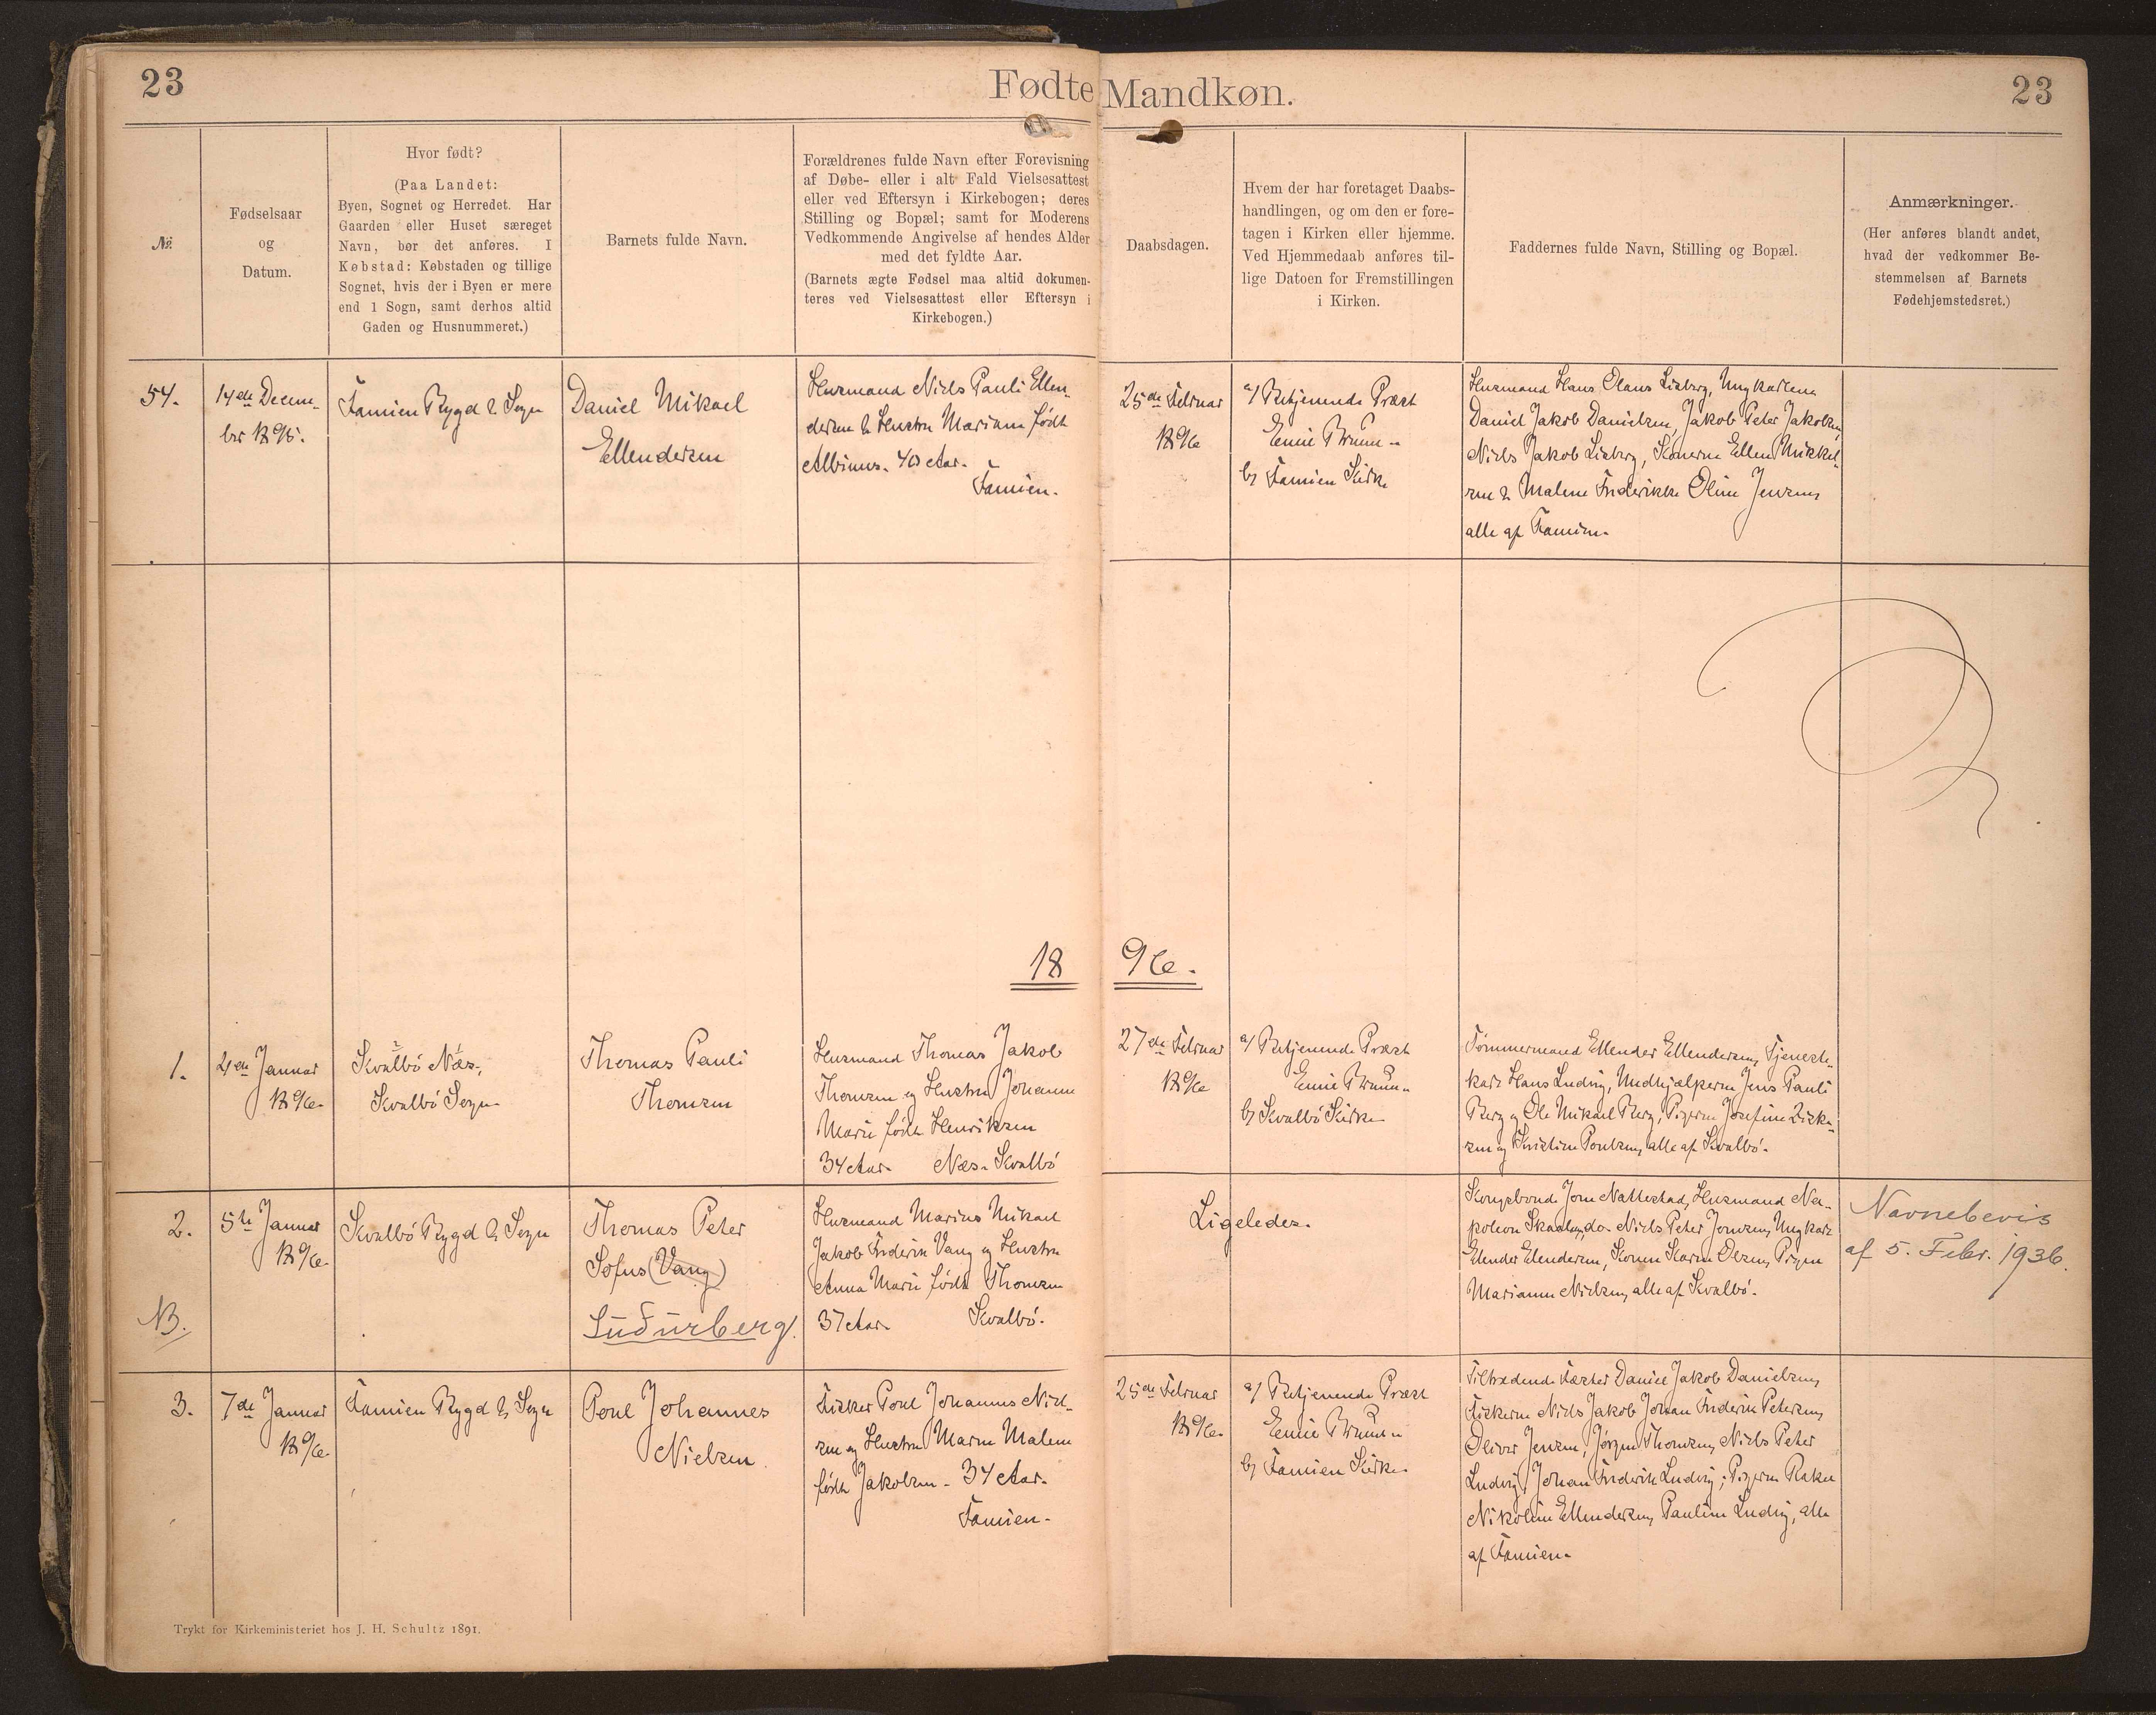 23
Fødte Mandkøn.
23
№
Fødselsaar
og
Datum.
Hvor født?
(Paa Landet:
Byen, Sognet og Herredet. Har
Gaarden eller Huset særeget
Navn, bør det anføres. I
Købstad: Købstaden og tillige
Sognet, hvis der i Byen er mere
end 1 Sogn, samt derhos altid
Gaden og Husnummeret.)
Barnets fulde Navn.
Forældrenes fulde Navn efter Forevisning
af Døbe- eller i alt Fald Vielsesattest
eller ved Eftersyn i Kirkebogen; deres
Stilling og Bopæl; samt for Moderens
Vedkommende Angivelse af hendes Alder
med det fyldte Aar.
(Barnets ægte Fødsel maa altid dokumen-
teres ved Vielsesattest eller Eftersyn i
Kirkebogen.)
Daabsdagen.
Hvem der har foretaget Daabs-
handlingen, og om den er fore-
tagen i Kirken eller hjemme.
Ved Hjemmedaab anføres til-
lige Datoen for Fremstillingen
i Kirken.
Faddernes fulde Navn, Stilling og Bopæl.
Anmærkninger.
(Her anføres blandt andet,
hvad der vedkommer Be-
stemmelsen af Barnets
Fødehjemstedsret.)
54.
14de Decem-
ber 1895.
Famien Bygd & Sogn
Daniel Mikael
Ellendersen
Husmand Niels Pauli Ellen-
dersen & Hustru Mariane født
Albinus. 40 Aar.
Famien.
25de Februar
1896
a/ Betjenende Præst
Emil Bruun
b/ Famien Kirke
Husmand Hans Olaus Lisberg, Ungkarlene
Daniel Jakob Danielsen, Jakob Peter Jakobsen,
Niels Jakob Lisberg, Konerne Ellen Mikkel-
sen & Malene Frederikke Oline Jensen,
alle af Famien.
1896.
1.
4de Januar
1896.
Kvalbö Næs,
Kvalbö Sogn
Thomas Pauli
Thomsen
Husmand Thomas Jakob
Thomsen og Hustru Johanne
Marie født Henriksen
34 Aar. Næs. Kvalbö
27de Februar
1896
a/ Betjenende Præst
Emil Bruun
b/ Kvalbö Kirke
Tömmermand Ellender Ellendersen, Tjeneste-
karl Hans Ludvig, Undhjælperne Jens Pauli
Berg og Ole Mikael Berg, Pigerne Josefine
og Kristine Poulsen, alle af Kvalbö.
2.
5te Januar
1896.
NB.
Kvalbö Bygd & Sogn
Thomas Peter
Sofus (Vang)
Suðurberg.
Husmand Marius Mikael
Jakob Frederik Vang og Hustru
Anna Marie født Thomsen
37 Aar. Kvalbö.
Ligeledes.
Kongsbonde Joen Nattestad, Husmand Na-
poleon do. Niels Peter Joensen, Ungkarl
Elender Elendersen, Konen Karin Olsen, Pigen
Marianne Nielsen, alle af Kvalbö.
Navnebevis
af 5. Febr. 1936.
3.
7de Januar
1896.
Famien Bygd & Sogn
Poul Johannes
Nielsen
Fisker Poul Johannes Niel-
sen og Hustru Maren Malene
født Jakobsen. 34 Aar.
Famien.
25de Februar
1896.
a/ Betjenende Præst
Emil Bruun
b/ Famien Kirke.
Tiltrædende Fæster Daniel Jakob Danielsen,
Fiskerne Niels Jakob Johan Frederik Petersen,
Oliver Jensen, Jörgen Thomsen, Niels Peter
Ludvig, Johan Frederik Ludvig; Pigerne Rakel
Nikoline Ellendersen, Pauline Ludvig, alle
af Famien.
Trykt for Kirkeministeriet hos J. H. Schultz 1891.